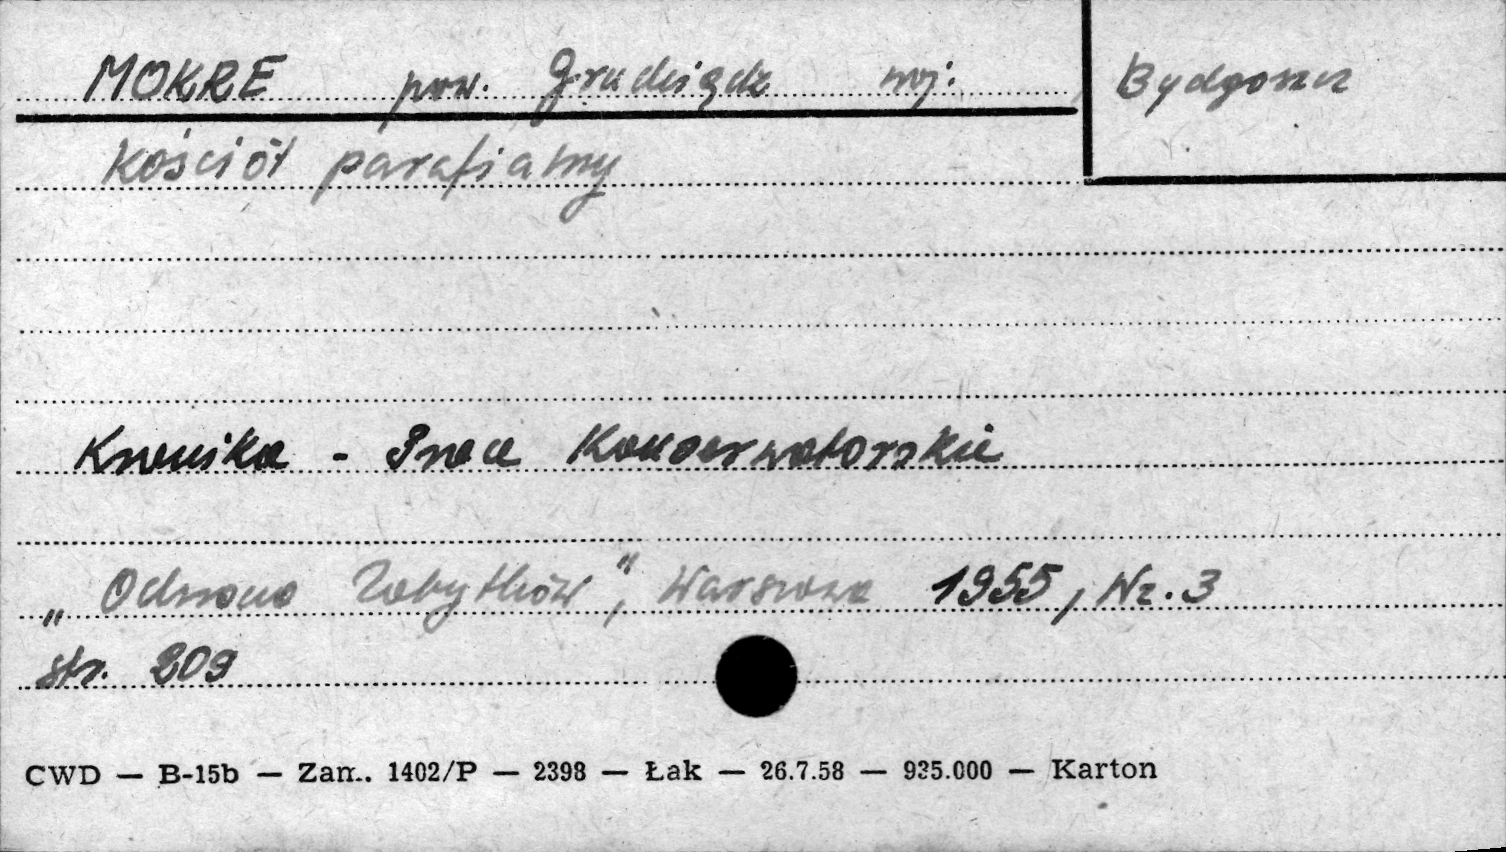 MOKRE pow. Grudziądz woj. Bydgoszcz
Kościół parafialny
Kronika - Prace Konserwatorskie
„Ochrona Zabytków", Warszawa 1955, Nr. 3
str. 209
CWD — B-15b — Zam. 1402/P — 2398 — Łak — 26.7.58 — 935.000 — Karton